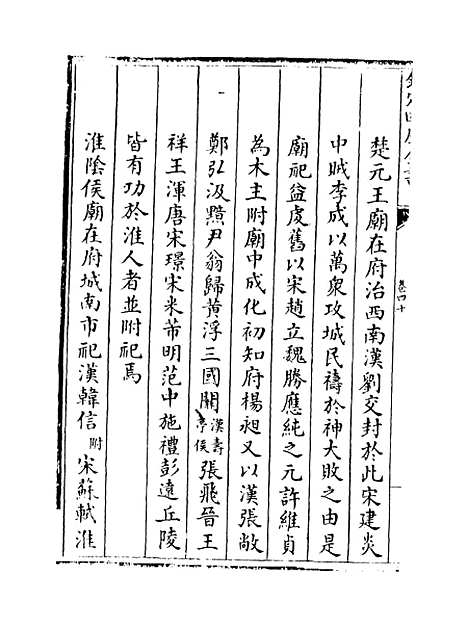 卷四十
楚元王廟在府治西南漢劉交封於此宋建炎
中賊李成以萬衆攻城民禱於神大敗之由是
廟祀益虔舊以宋趙立魏勝應純之元許維貞
為木主附廟中成化初知府楊昶又以漢張敞
鄭弘汲黯尹翁歸黄浮三國關漢壽亭侯張飛晉王
祥王渾唐宋璟宋米芾明范中施禮彭遠丘陵
皆有功於淮人者並附祀焉
淮陰侯廟在府城南市祀漢韓信附宋蘇軾淮